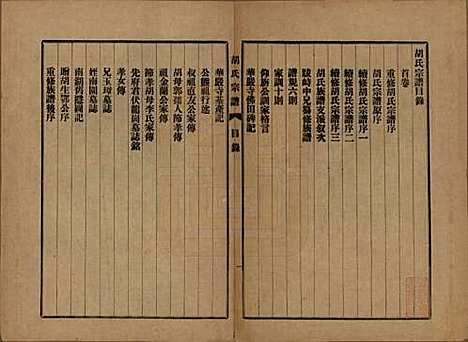 胡氏宗譜目錄
首卷
重修胡氏宗譜序
胡氏宗譜原序
續修胡氏宗譜序一
續修胡氏宗譜序二
續修胡氏宗譜序三
胡氏族譜支派敘次
跋峙中兄續修族譜
譜規六則
家訓十則
仰族公訓家格言
華嚴寺佛田碑記
胡氏宗譜 目錄
華嚴寺基產記
公熊祖行述
叔祖直友公家傳
胡母郭孺人節孝傳
祖金蘭公家傳
節孝胡母李氏家傳
先府君伏龍崗墓誌銘
孝女傳
兄玉璋墓誌
姪南園墓誌
南湖舊隱圖記
贈胡生鄂公序
重修族譜後序